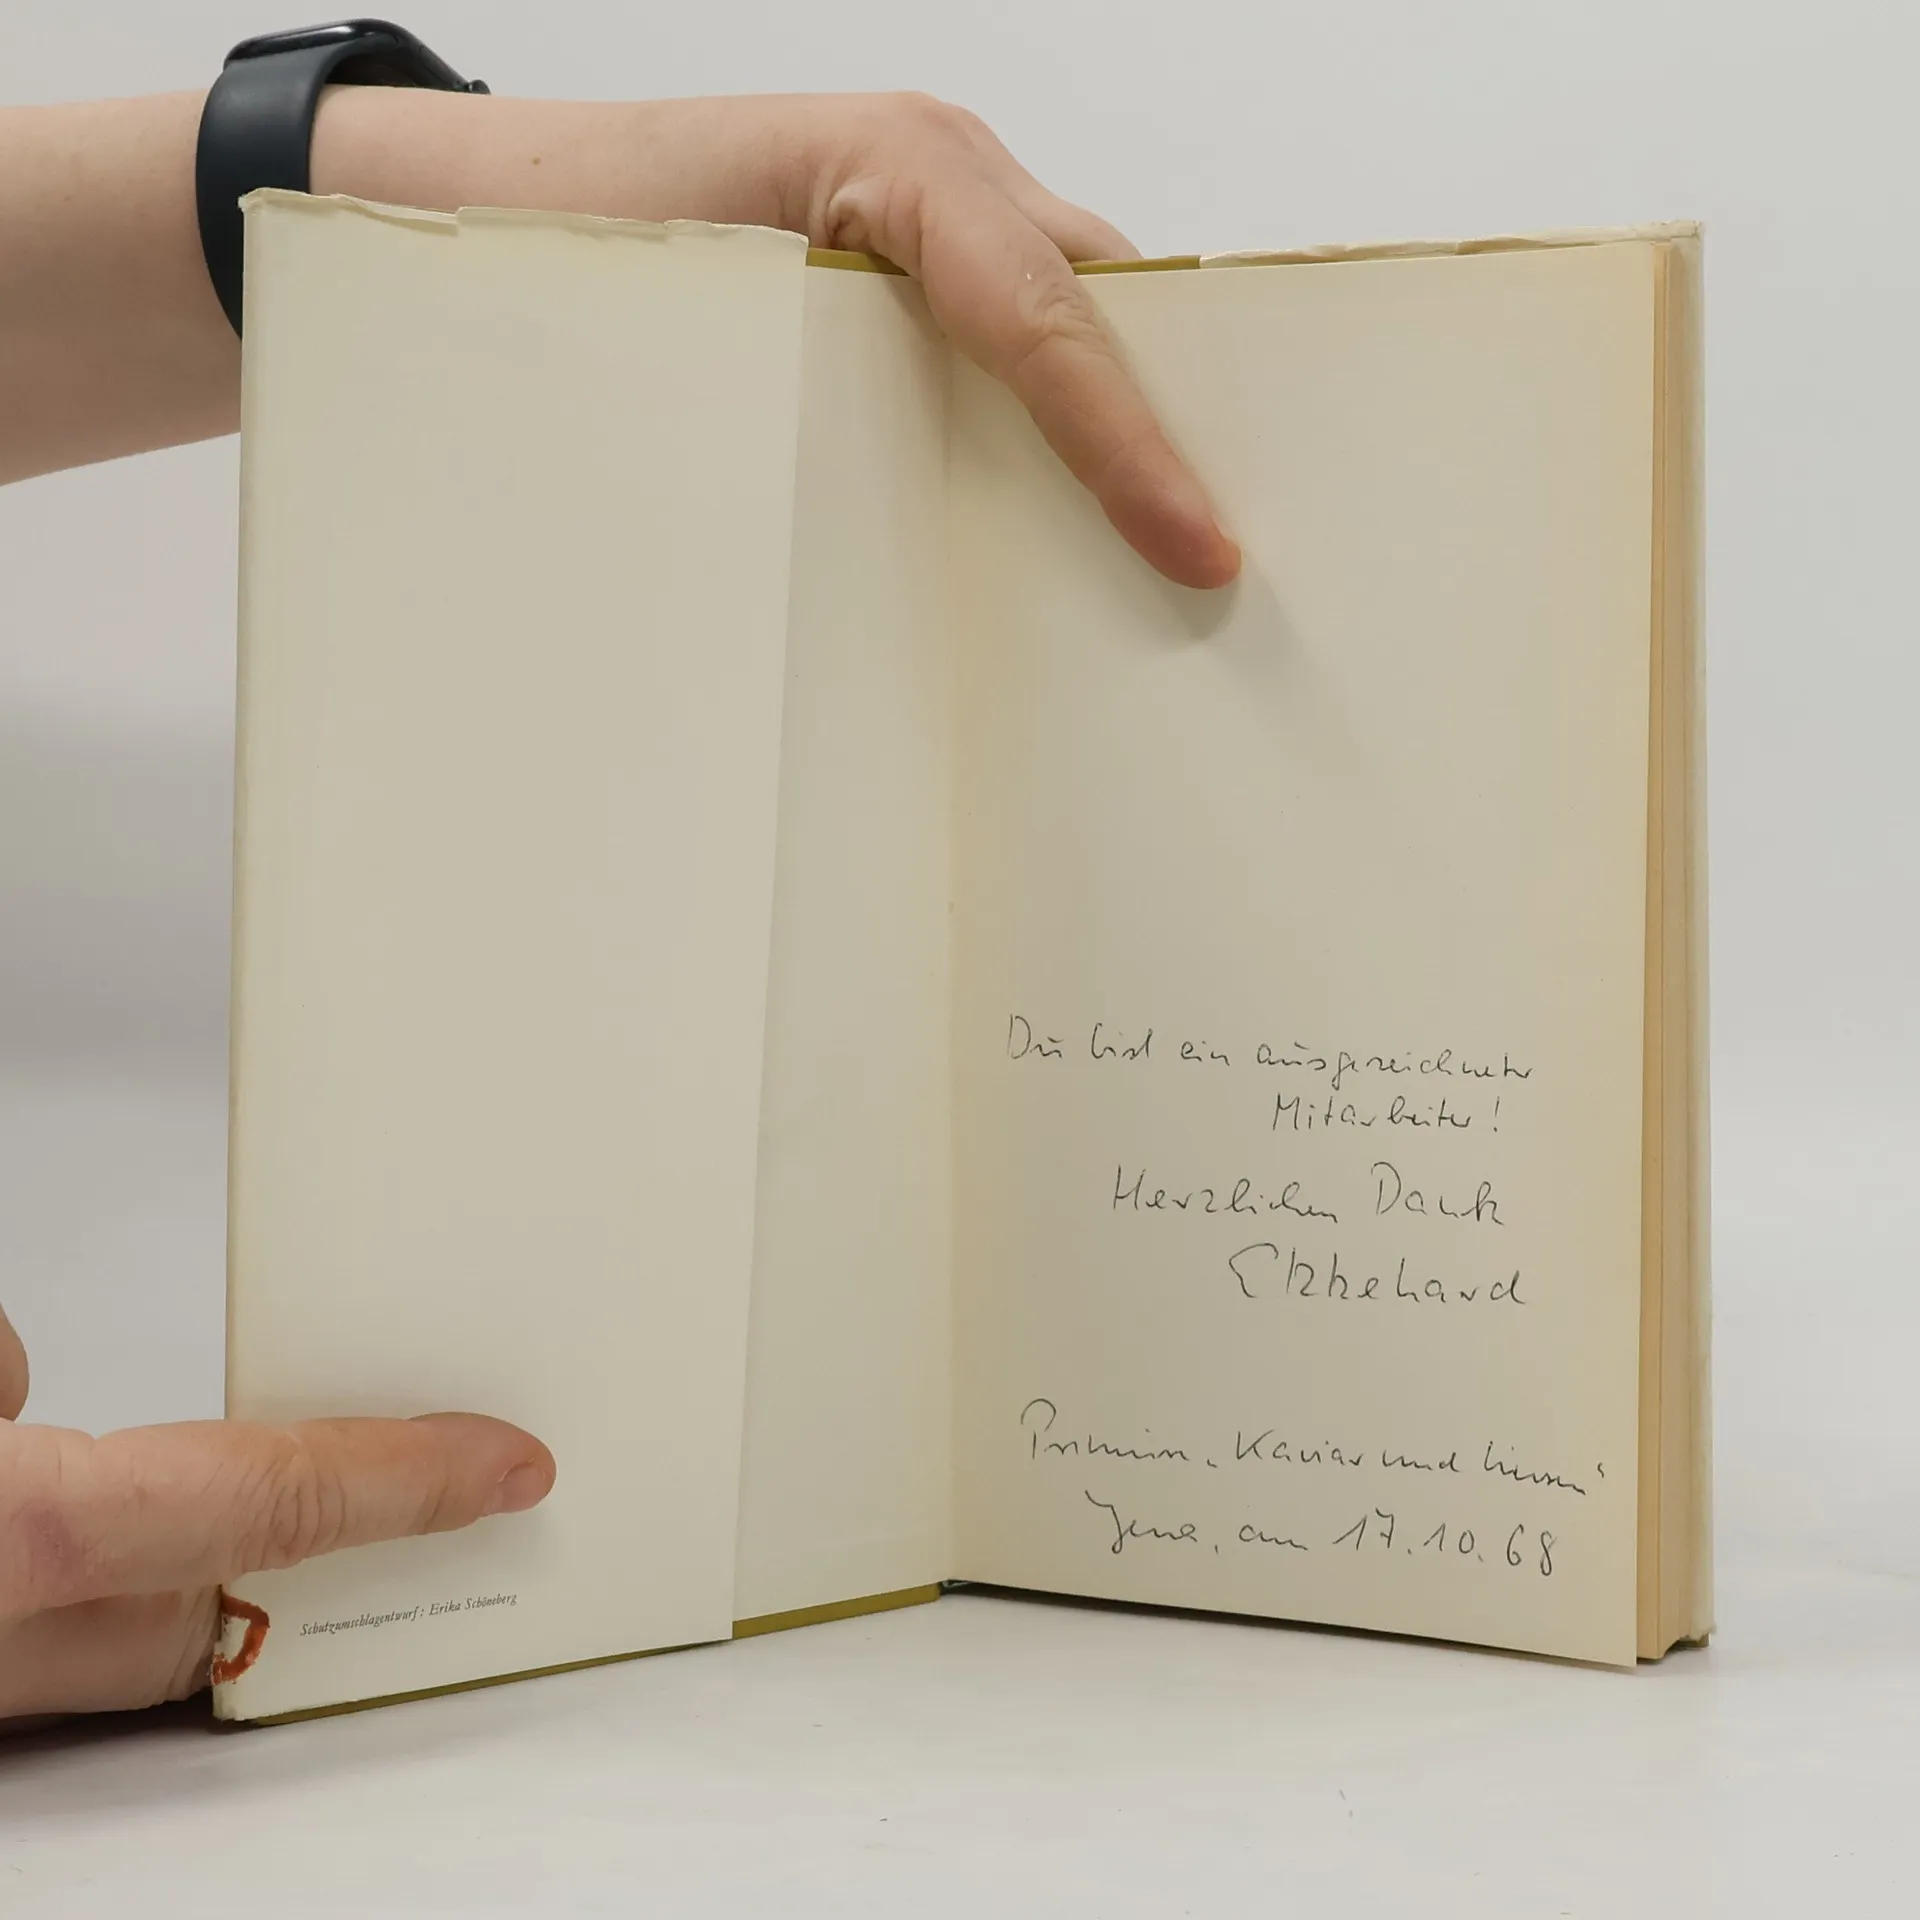 Schutzumschlagentwurf: Erika Schöneberg
Du bist ein ausgezeichneter
Mitarbeiter!
Herzlichen Dank
Ekkehard
Premiere „Kaviar und Linsen“
Jena, am 17.10.68